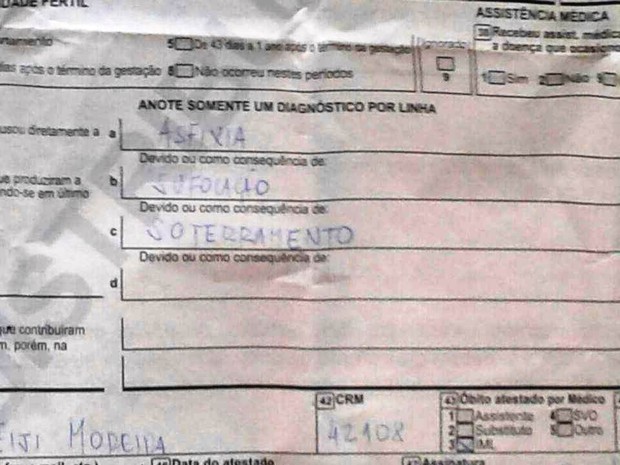 DADE FÉRTIL
ASSISTÊNCIA MÉDICA
5 De 43 dias a 1 ano após o término da gestação
Ignorado
Recebeu assist. médica
a doença que ocasiono
após o término da gestação 8 Não ocorreu nestes períodos
9
1 Sim 2 Não 9
ANOTE SOMENTE UM DIAGNÓSTICO POR LINHA
usou diretamente a a ASFIXIA
Devido ou como consequência de:
ue produziram a b SUFOCAÇÃO
ndo-se em último
Devido ou como consequência de:
c SOTERRAMENTO
Devido ou como consequência de:
d
que contribuíram
m, porém, na
42 CRM
43 Óbito atestado por Médico
42108
1 Assistente 4 SVO
2 Substituto 5 Outro
3 IML
EIJI MOREIRA
Data do atestado
Assinatura